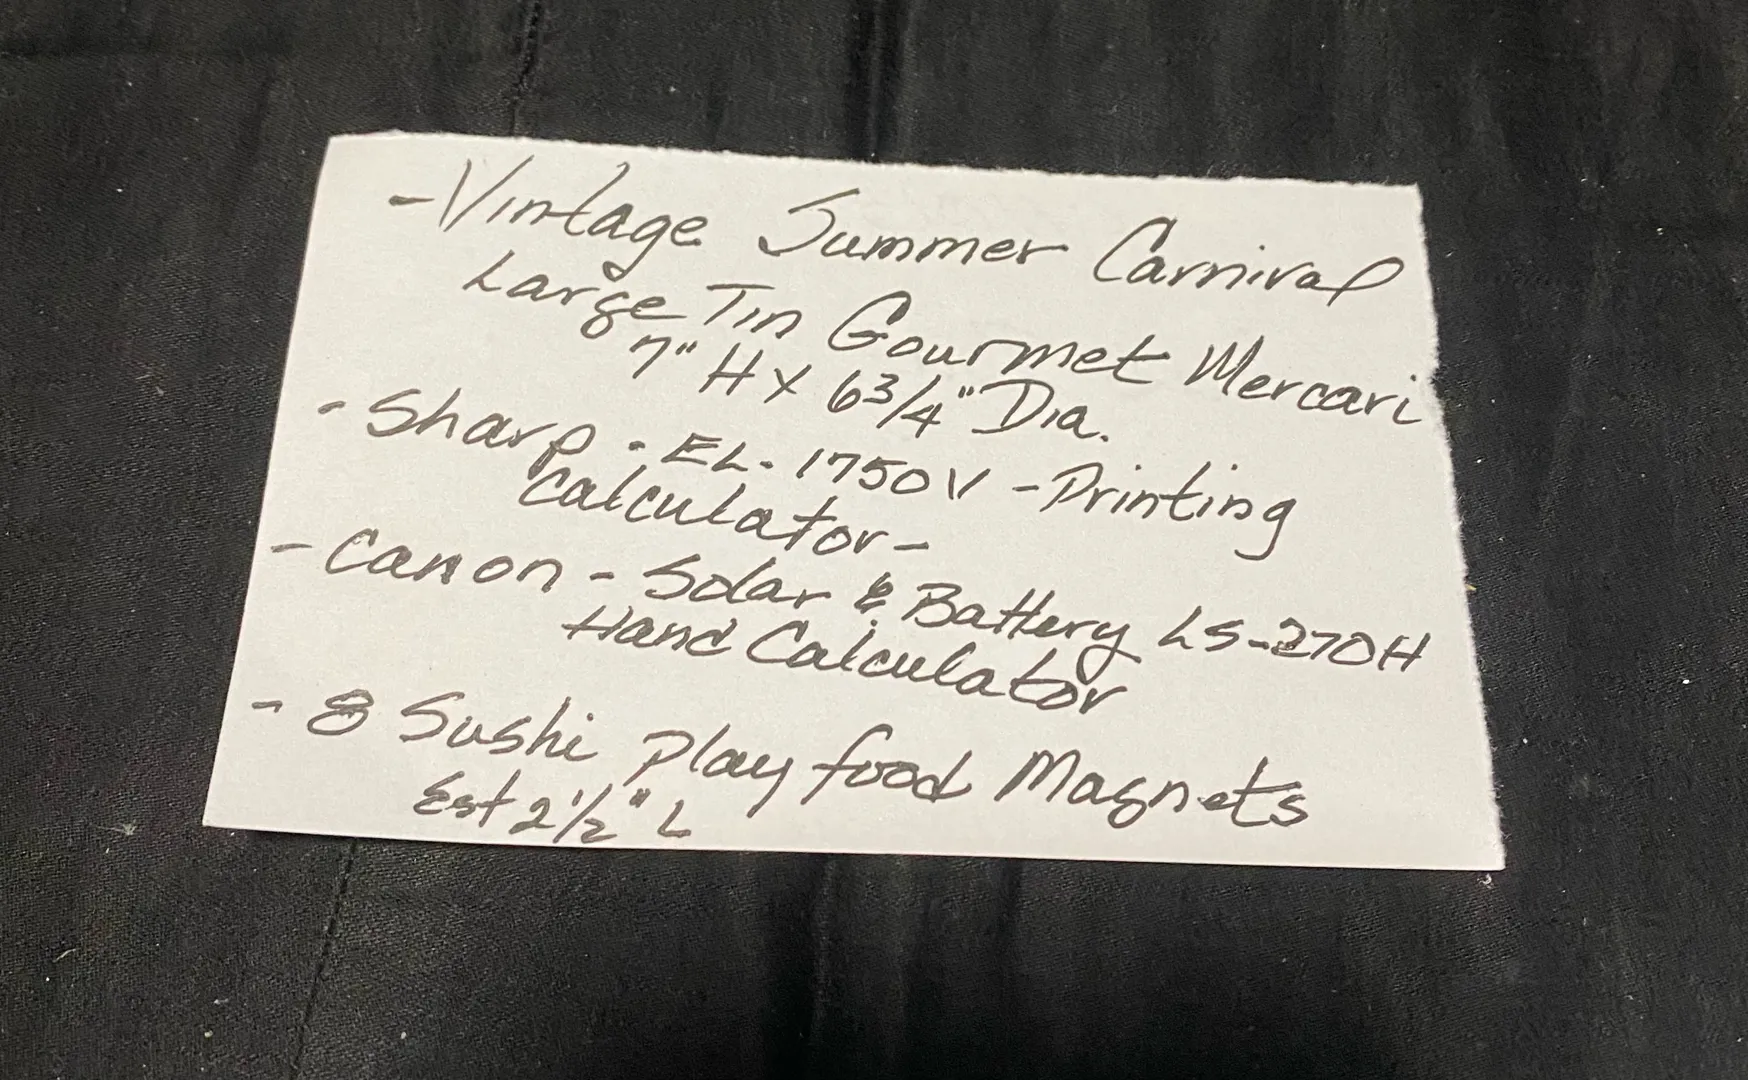 - Vintage Summer Carnival
Large Tin Gourmet Mercari
7" H X 6 3/4" Dia.
- Sharp - EL-1750V - Printing
Calculator -
- Canon - Solar & Battery LS-270H
Hand Calculator
- 8 Sushi Play food Magnets
Est 2 1/2" L